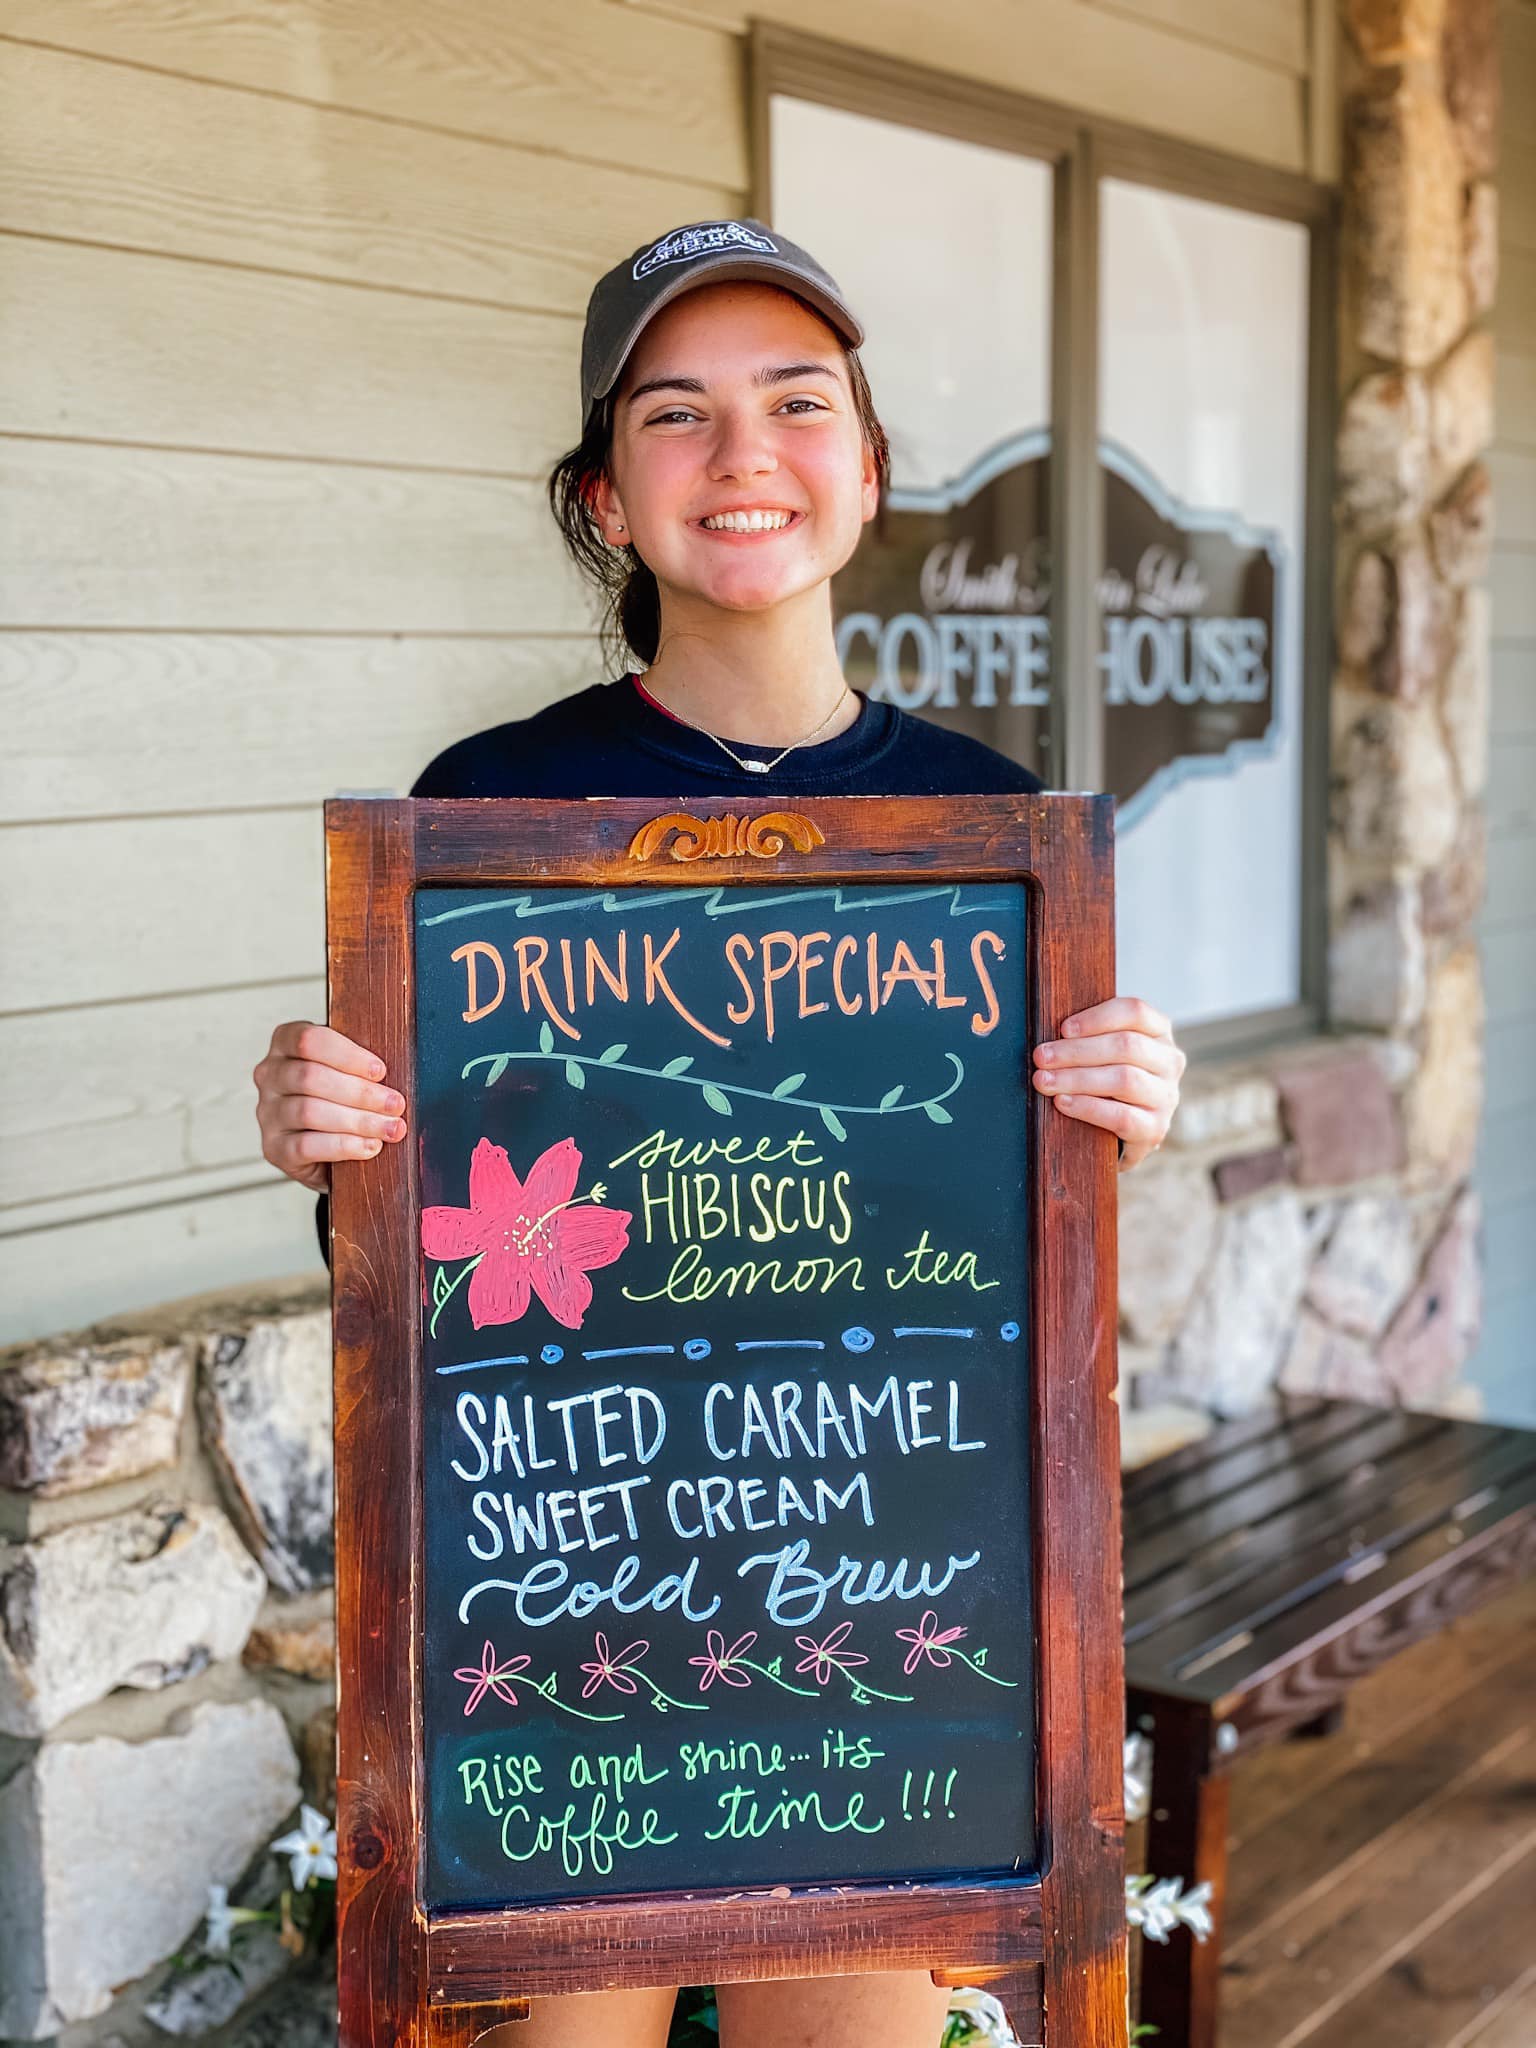 COFFEE HOUSE
Smith Lake
COFFEE HOUSE
DRINK SPECIALS
sweet
HIBISCUS
lemon tea
SALTED CARAMEL
SWEET CREAM
Cold Brew
Rise and shine... its
Coffee time !!!